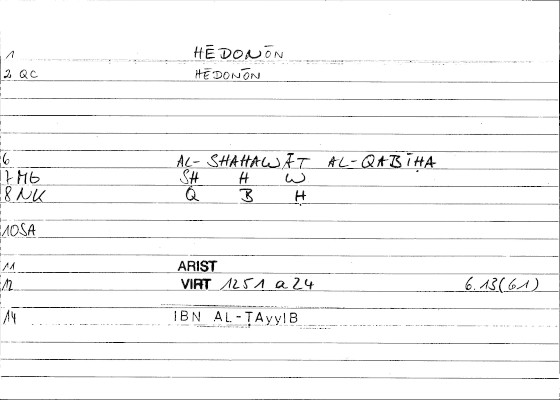 1 HĒDONŌN
2 QC HĒDONŌN
6 AL-SHAHAWĀT AL-QABĪḤA
7 MB SH H W
8 NK Q B Ḥ
10 SA
11 ARIST
12 VIRT 1251 a 24 6.13(61)
14 IBN AL-ṬAyyIB